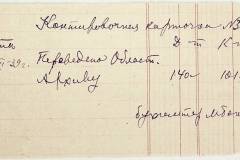 Контировочная карточка №
Д-т К-т
Переведено Област.
Архиву 140 101
бухгалтер